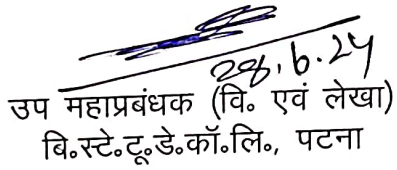 28.6.24
उप महाप्रबंधक (वि॰ एवं लेखा)
बि॰स्टे॰टू॰डे॰कॉ॰लि॰, पटना